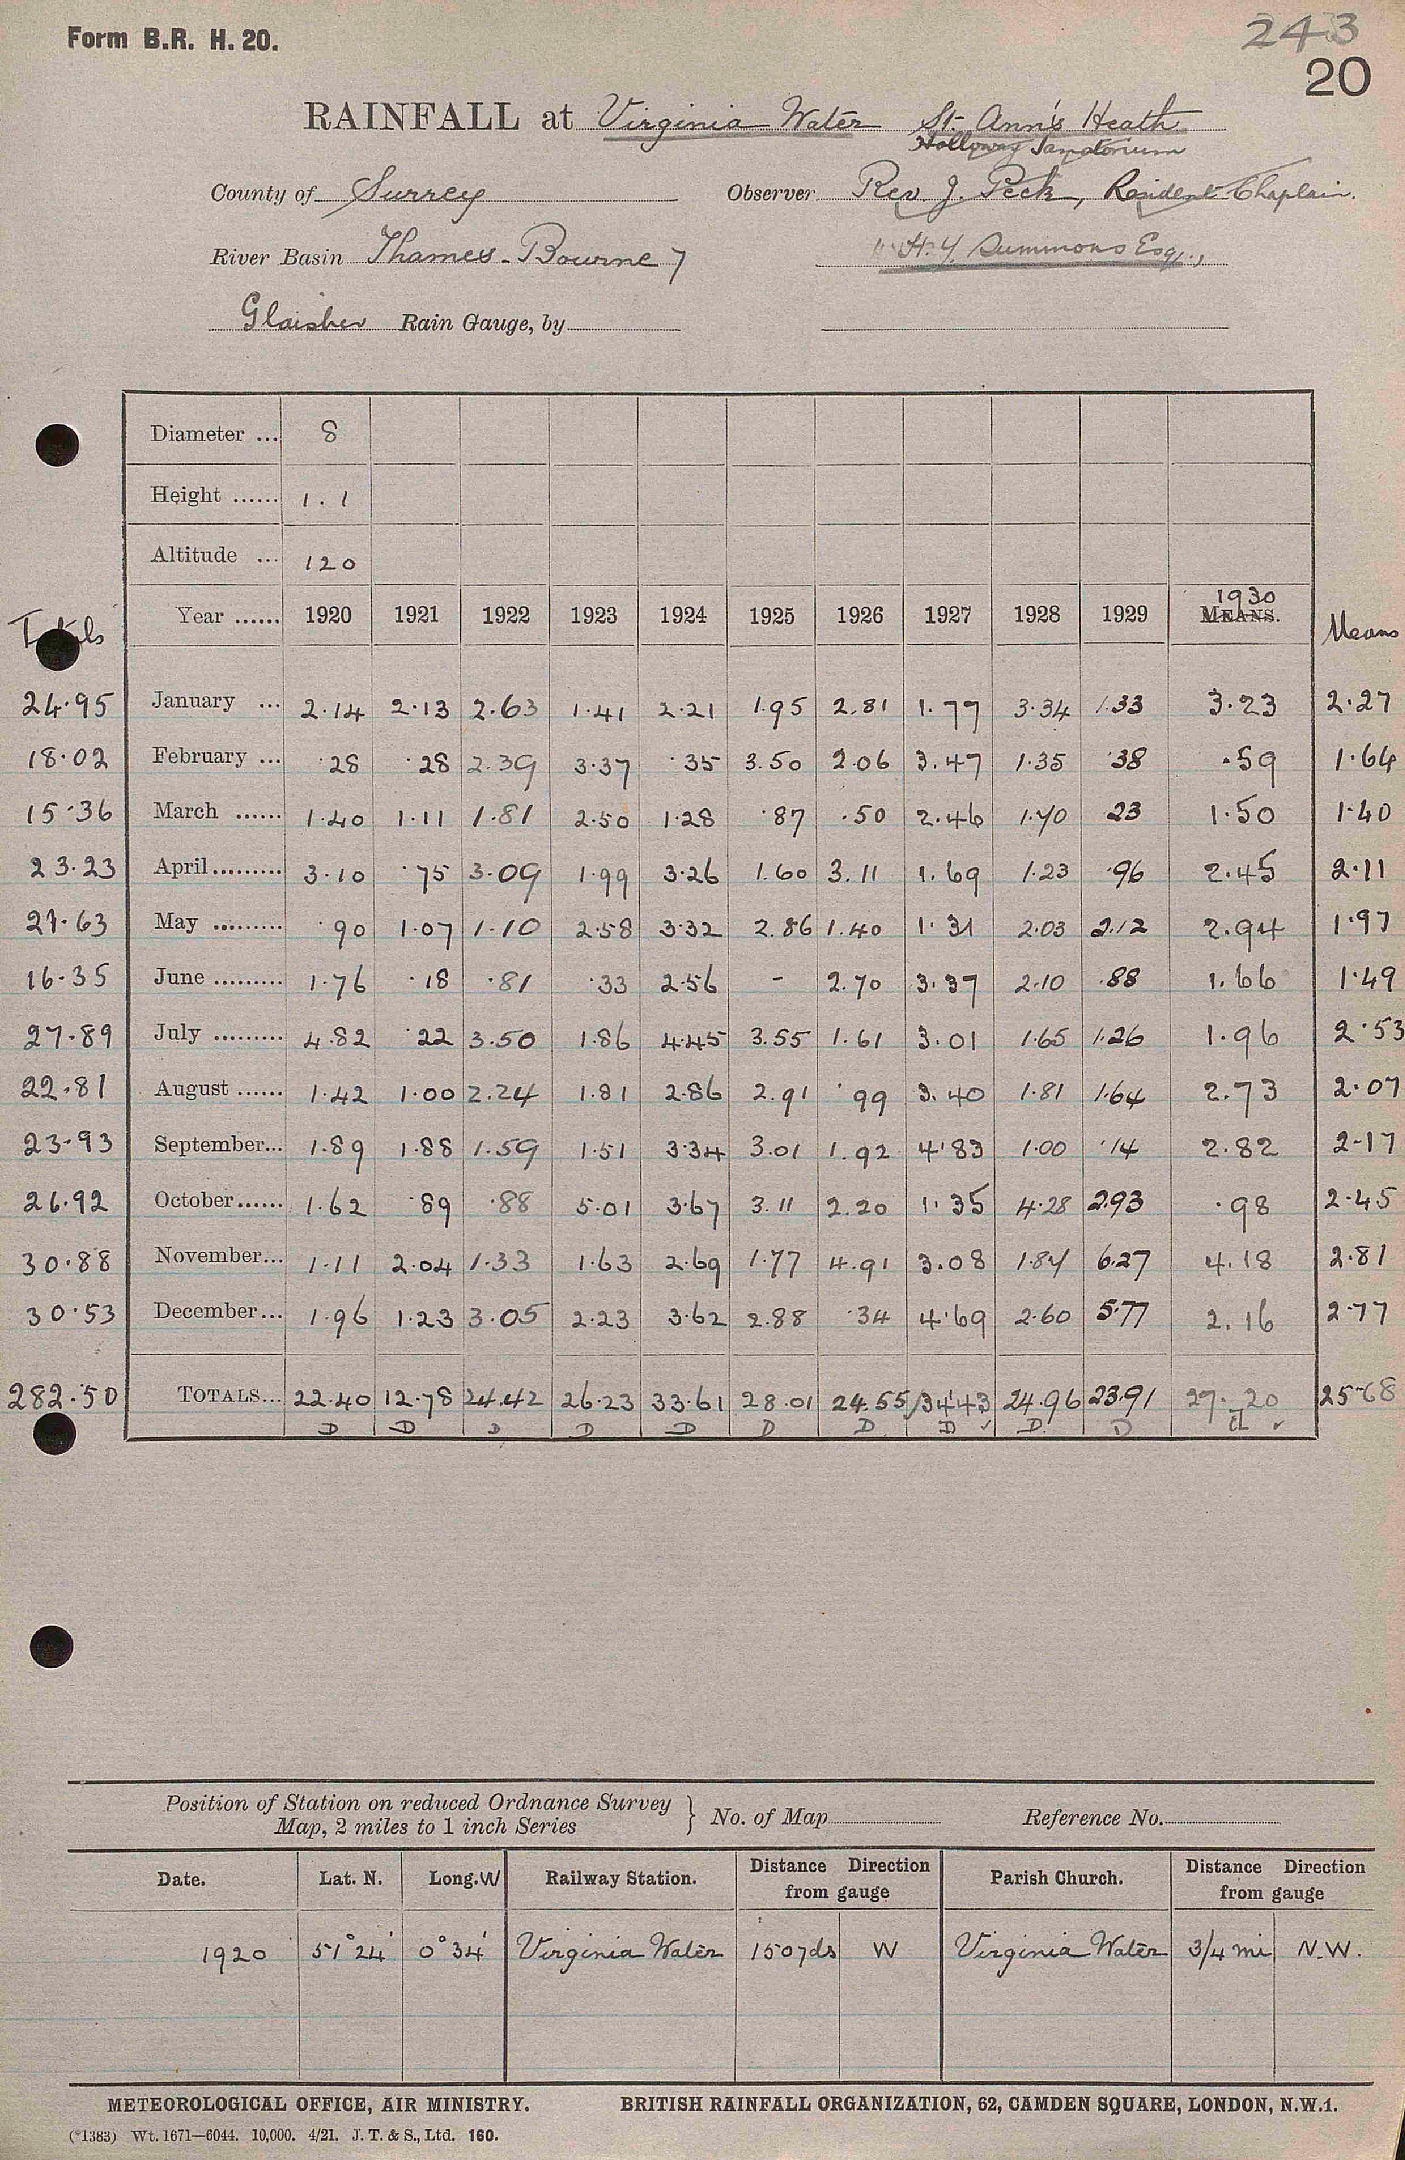 Form B.R. H. 20.
243
20
RAINFALL at Virginia Water St Ann's Heath
Holloway Sanatorium
County of Surrey Observer Rev J. Peck, Resident Chaplain.
River Basin Thames - Bourne 7 " H. Y. Summons Esq.,
Glaisher Rain Gauge, by
Diameter ... 8
Height ...... 1.1
Altitude ... 120
Totals Year ...... 1920 1921 1922 1923 1924 1925 1926 1927 1928 1929 1930 MEANS. Means
24.95 January ... 2.14 2.13 2.63 1.41 2.21 1.95 2.81 1.77 3.34 1.33 3.23 2.27
18.02 February ... .28 .28 2.39 3.37 .35 3.50 2.06 3.47 1.35 .38 .59 1.64
15.36 March ...... 1.40 1.11 1.81 2.50 1.28 .87 .50 2.46 1.70 .23 1.50 1.40
23.23 April ......... 3.10 .75 3.09 1.99 3.26 1.60 3.11 1.69 1.23 .96 2.45 2.11
21.63 May ......... .90 1.07 1.10 2.58 3.32 2.86 1.40 1.31 2.03 2.12 2.94 1.97
16.35 June ......... 1.76 .18 .81 .33 2.56 - 2.70 3.37 2.10 .88 1.66 1.49
27.89 July ......... 4.82 .22 3.50 1.86 4.45 3.55 1.61 3.01 1.65 1.26 1.96 2.53
22.81 August ...... 1.42 1.00 2.24 1.81 2.86 2.91 .99 3.40 1.81 1.64 2.73 2.07
23.93 September... 1.89 1.88 1.59 1.51 3.34 3.01 1.92 4.83 1.00 .14 2.82 2.17
26.92 October...... 1.62 .89 .88 5.01 3.67 3.11 2.20 1.35 4.28 2.93 .98 2.45
30.88 November... 1.11 2.04 1.33 1.63 2.69 1.77 4.91 3.08 1.87 6.27 4.18 2.81
30.53 December... 1.96 1.23 3.05 2.23 3.62 2.88 .34 4.69 2.60 5.77 2.16 2.77
282.50 TOTALS... 22.40 12.78 24.42 26.23 33.61 28.01 24.55 34.43 24.96 23.91 27.20 25.68
D D D D D D D D ✓ D D ✓
Position of Station on reduced Ordnance Survey
Map, 2 miles to 1 inch Series } No. of Map Reference No.
Date. Lat. N. Long. W Railway Station. Distance Direction from gauge Parish Church. Distance Direction from gauge
1920 51° 24' 0° 34' Virginia Water 150 yds W Virginia Water 3/4 mi N.W.
METEOROLOGICAL OFFICE, AIR MINISTRY. BRITISH RAINFALL ORGANIZATION, 62, CAMDEN SQUARE, LONDON, N.W.1.
(*1383) Wt. 1671—6044. 10,000. 4/21. J. T. & S., Ltd. 160.